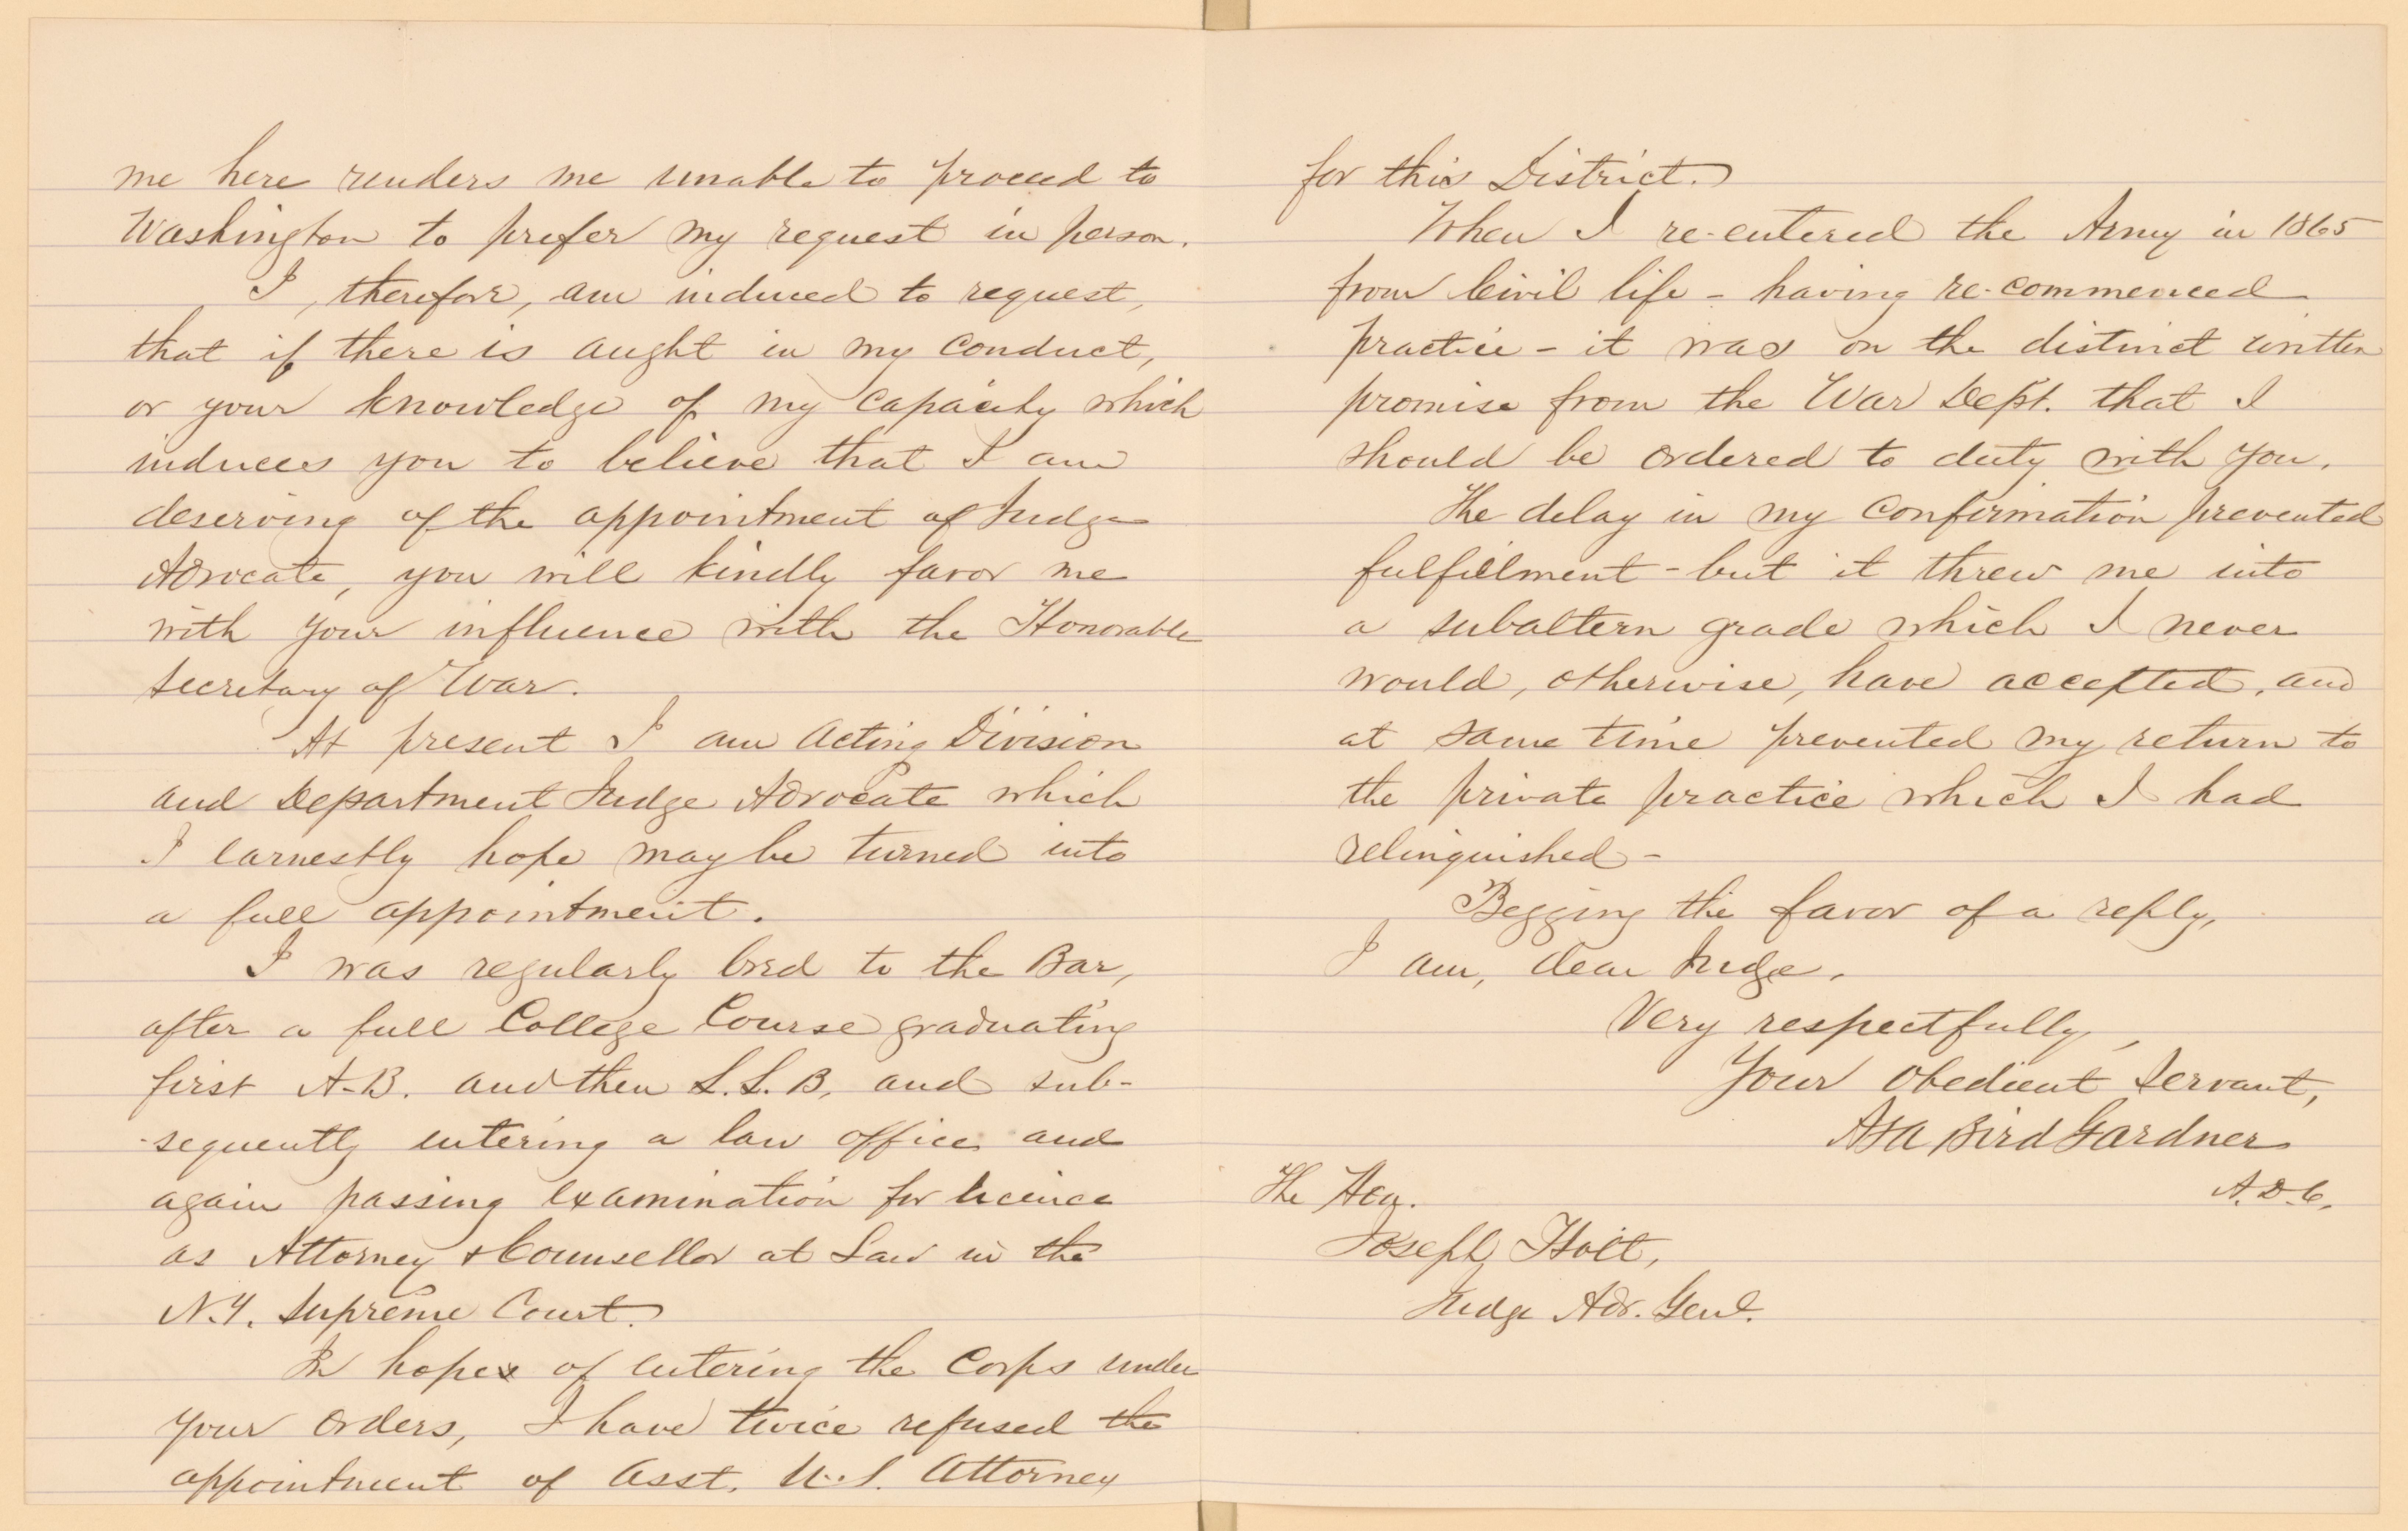 me here renders me unable to proceed to
Washington to prefer my request in person.
I, therefore, am induced to request,
that if there is aught in my conduct,
or your knowledge of my capacity which
induces you to believe that I am
deserving of the appointment of Judge
Advocate, you will kindly favor me
with your influence with the Honorable
Secretary of War.
At present I am Acting Division
and Department Judge Advocate which
I earnestly hope may be turned into
a full appointment.
I was regularly bred to the Bar,
after a full College Course graduating
first A.B. and then L.L.B, and sub-
sequently entering a law office and
again passing examination for licence
as Attorney & Counsellor at Law in the
N.Y. Supreme Court.
In hopes of entering the Corps under
your orders, I have twice refused the
appointment of Asst. U.S. Attorney
for this District.
When I re-entered the Army in 1865
from Civil life - having re-commenced
practice - it was on the distinct written
promise from the War Dept. that I
should be ordered to duty with you.
The delay in my confirmation prevented
fulfillment - but it threw me into
a subaltern grade which I never
would, otherwise, have accepted, and
at same time prevented my return to
the private practice which I had
relinquished -
Begging the favor of a reply,
I am, dear Judge,
Very respectfully,
Your obedient Servant,
Asa Bird Gardner
A.D.C.
The Hon.
Joseph Holt,
Judge Adv. Genl.